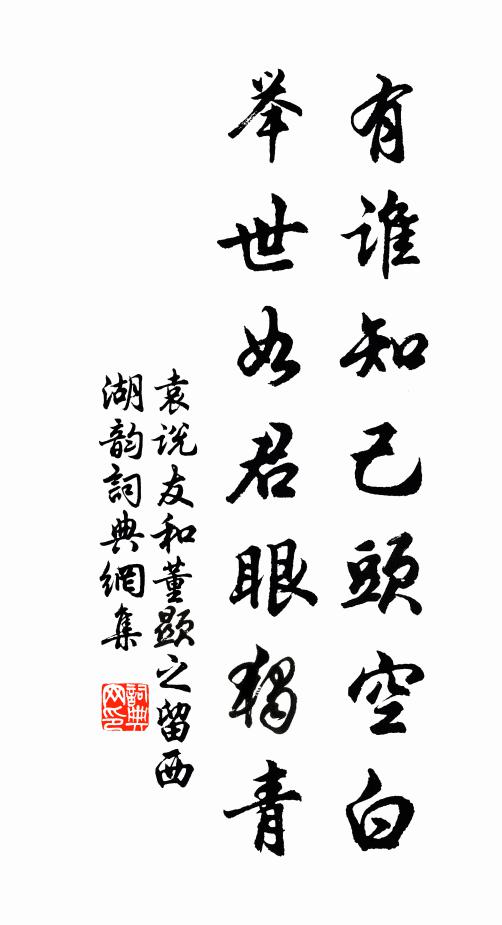 有誰知己頭空白
举世如君眼獨青
袁说友和董顯之留西
湖韵詞典網集
詞典
网印